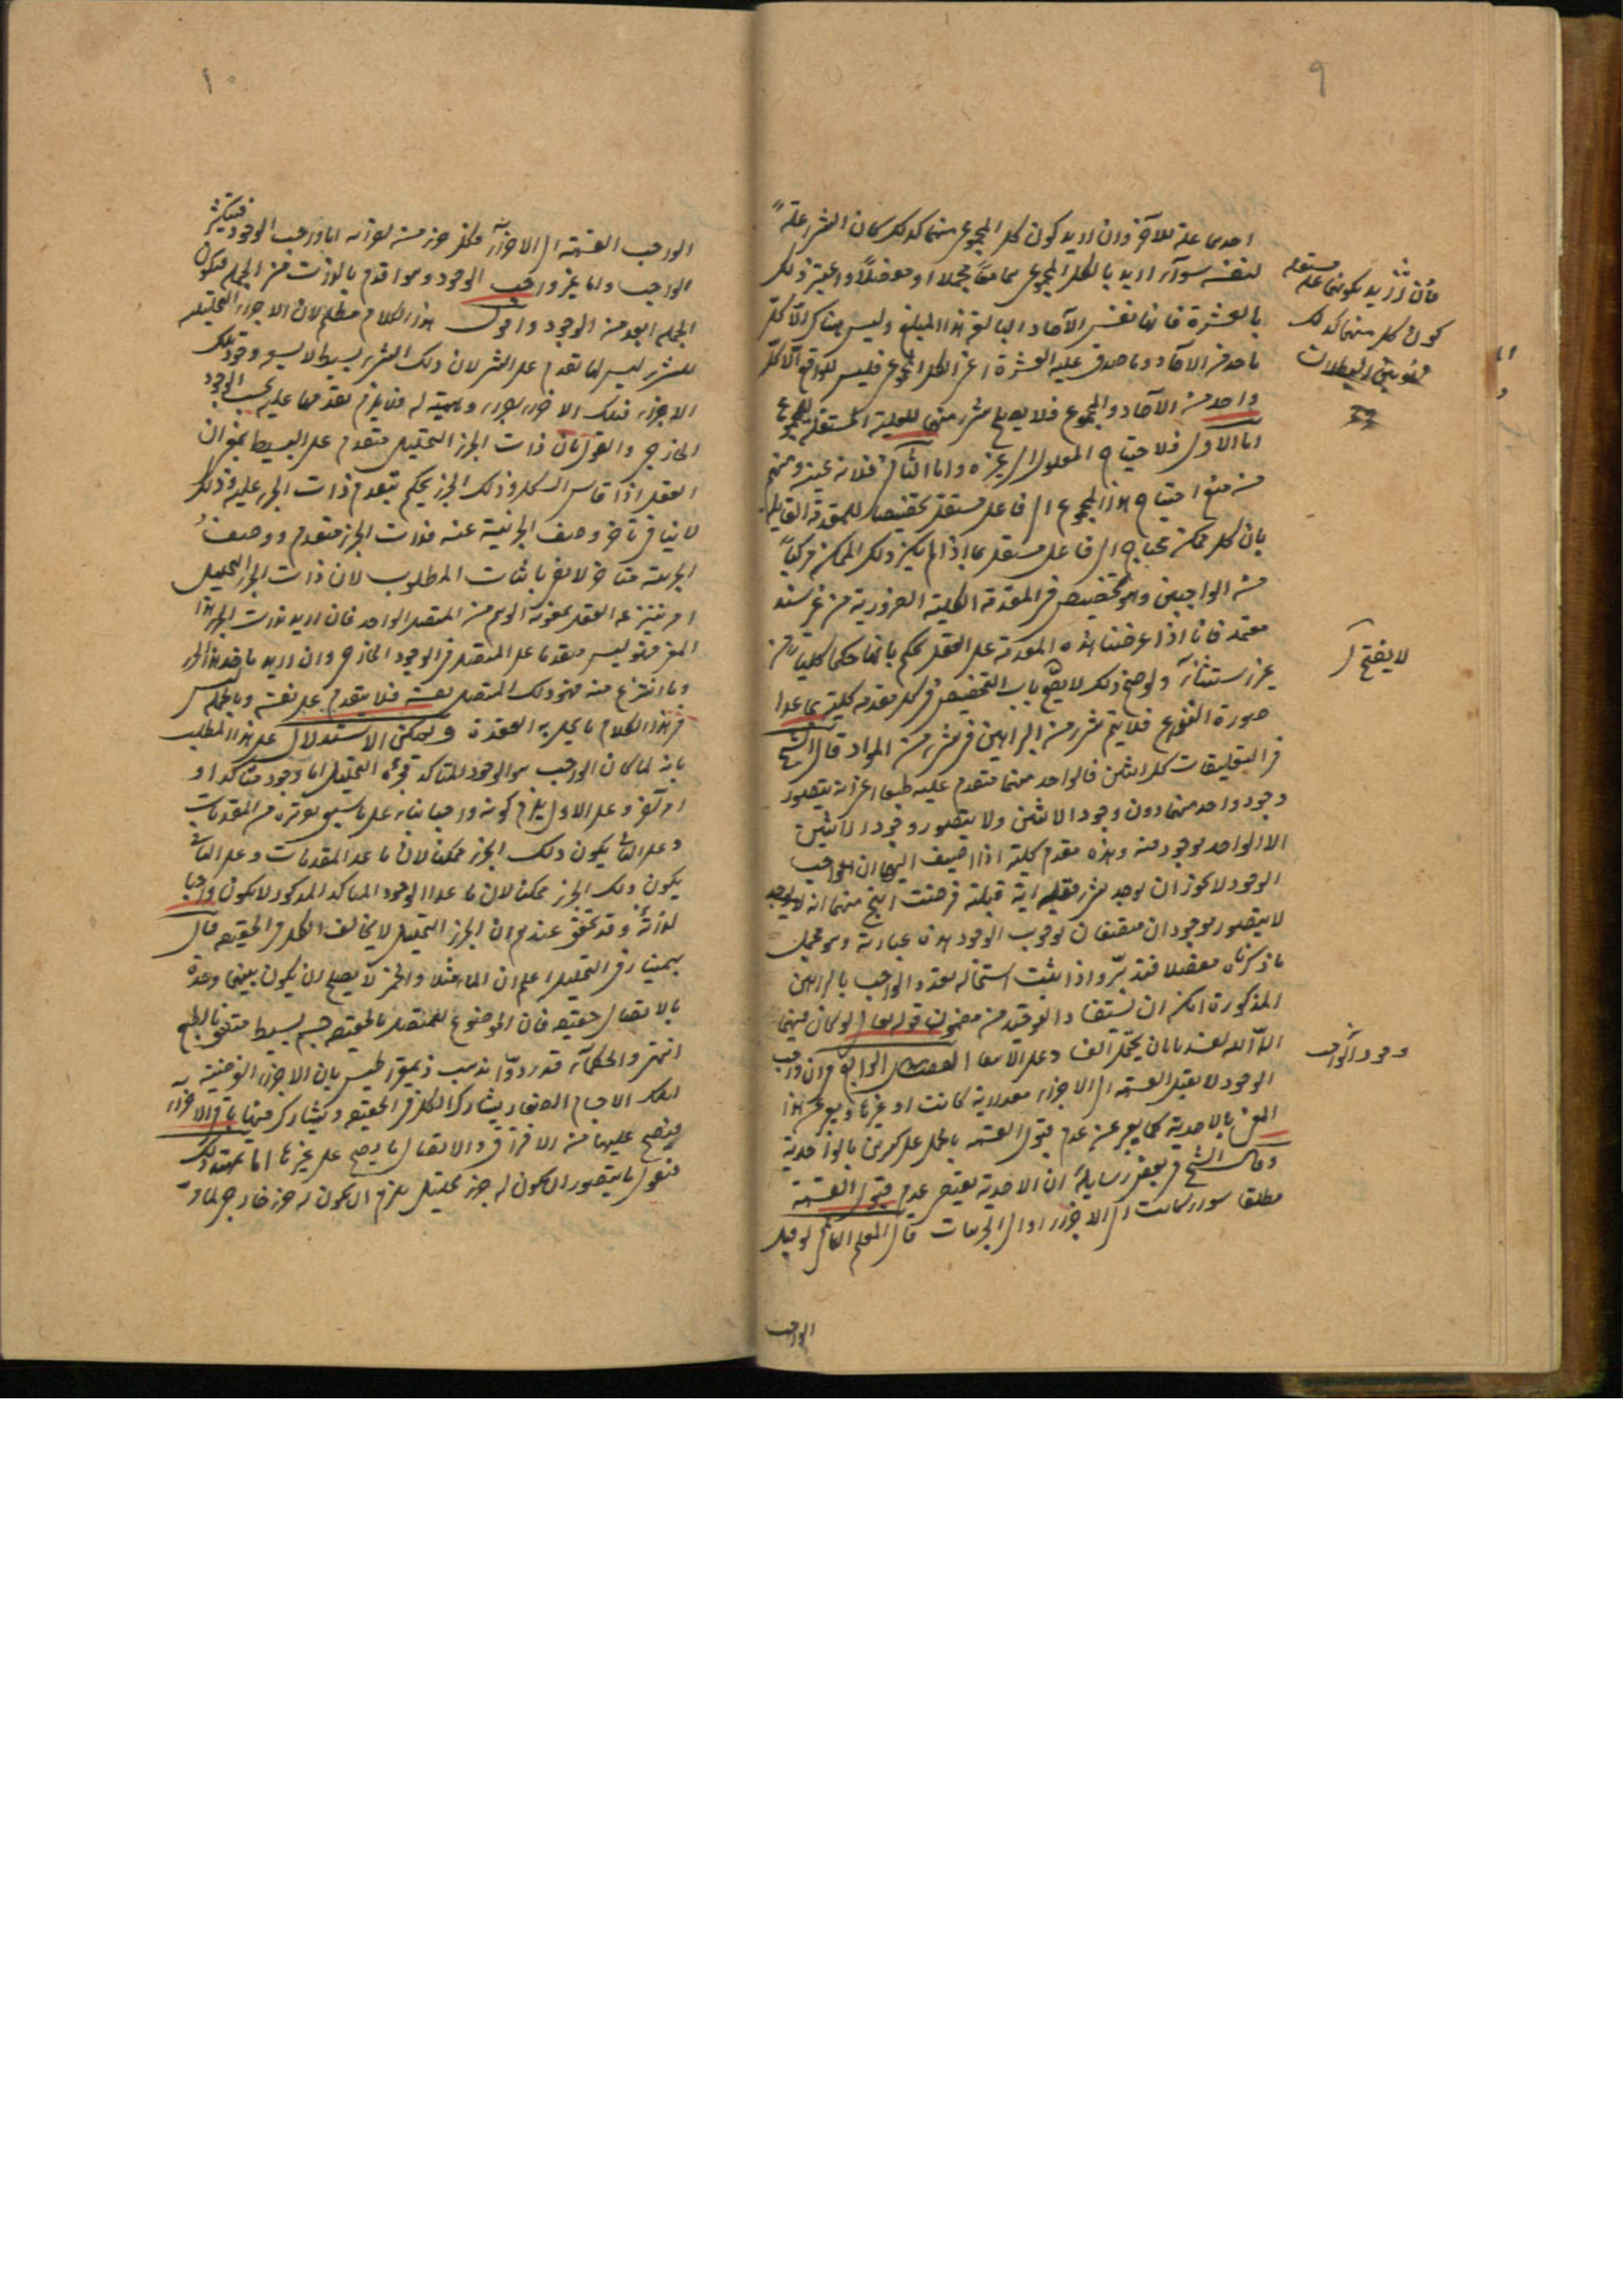 ٩
احدهما علة للآخر وان اريد كون كل المجموع منهما كذلك كان الشئ علة
لنفسه سوآء اريد بالكل المجموع معا مجملا او مفصلا واعتبر ذلك
بالعشرة فانها نفس الآحاد البالغة هذا المبلغ وليس هناك الا كل
واحد من الآحاد وما صدق عليه العشرة اعني الكل المجموع فليس الا كل
واحد من الآحاد والمجموع فلا يصلح شئ منهما للعلية المستقلة للمجموع
اما الاول فلاحتياج المعلول الى غيره واما الثاني فلانه عينه ومنهم
من منع احتياج هذا المجموع الى فاعل مستقل تخصيصا للمقدمة القايلة
بان كل ممكن محتاج الى فاعل مستقل بما اذا لم يكن ذلك الممكن مركبا
من الواجبين وهو تخصيص في المقدمة الكلية الضرورية من غير سند
معتمد فانا اذا عرضنا هذه المقدمة على العقل يحكم بانها حكما كليا من
غير استثنآء ولو صح ذلك لا يفتح باب التخصيص في كل مقدمة كلية بما عدا
صورة النزاع فلا يتم شئ من البراهين في شئ من المواد قال الشيخ
في التعليقات كل اثنين فالواحد منهما متقدم عليه طبعا اعني انه يتصور
وجود واحد منهما دون وجود الاثنين ولا يتصور وجود الاثنين
الا والواحد موجود منه وهذه مقدمة كلية اذا اضيف اليها ان الواجب
الوجود لا يجوز ان يوجد شئ قبله اية قبلية فرضت انتج منهما انه
لا يتصور موجودان متصفان بوجوب الوجود هذه عبارته وهو مجمل
ما ذكرناه مفصلا فتدبر واذا ثبت استحالة تعدد الواجب بالبراهين
المذكورة امكن ان يستفاد التوحيد من مضمون قوله تعالى لو كان فيهما
الهة الا الله لفسدتا بان يحمل الفساد على الانتفا الفصل الرابع في ان واجب
الوجود لا يقبل القسمة الى الاجزاء مقدارية كانت او غيرها ويعبر عن هذا
المعنى بالاحدية كما يعبر عن عدم قبول القسمة بالحمل على كثيرين بالواحدية
وقال الشيخ في بعض رسايله ان الاحدية يقتضي عدم قبول القسمة
مطلقا سواء كانت الى الاجزاء او الى الجزئيات قال المعلم الثاني لو قبل
الواجب
فان اريد بكونهما علة مستقلة
كون كل منهما كذلك
فهو بين البطلان
لا يفتح
وجود الواجب
١٠
الواجب القسمة الى الاجزآء فكل جزء منه لذاته اما واجب الوجود فيتكثر
الواجب واما غير واجب الوجود وهو اقدم بالذات من الجملة فيكون
الجملة ابعد من الوجود واقول هذا الكلام مظلم لان الاجزاء التحليلية
للشئ ليس لها تقدم على الشئ لان ذلك الشئ بسيط لا يسبق وجود تلك
الاجزاء فتلك الاجزاء اجزاء وهمية له فلا يلزم تقدمها عليه بحسب الوجود
الخارجي والقول بان ذات الجزء التحليلي متقدم على البسيط بمعنى ان
العقل اذا قاس الكل وذلك الجزء يحكم بتقدم ذات الجزء عليه وذلك
لا ينافي تأخر وصف الجزئية عنه فذات الجزء متقدم ووصف
الجزئية متاخر لا يفي باثبات المطلوب لان ذات الجزء التحليلي
امر ينتزعه العقل بمعونة الوهم من المتصل الواحد فان اريد بذات الجزء هذا
المعنى فهو ليس متقدما على المتصل في الوجود الخارجي وان اريد ماخذ هذا الجزء
وما انتزع منه فهو ذلك المتصل بعينه فلا يتقدم على نفسه وبالجملة ليس
في هذا الكلام ما يحل به العقدة ويمكن الاستدلال على هذا المطلب
بانه لما كان الواجب هو الوجود المتاكد فجزئه التحليلي اما وجود متاكد او
امر آخر وعلى الاول يلزم كونه واجبا بناء على ما سبق من المقدمات
وعلى الثاني يكون ذلك الجزء ممكنا لان ما عدا المقدمات وعلى الثاني
يكون ذلك الجزء ممكنا لان ما عدا الوجود المتاكد المذكور لا يكون واجبا
لذاته وقد تحقق عندهم ان الجزء التحليلي لا يخالف الكل في الحقيقة قال
بهمنيار في التحصيل اعلم ان الماء مثلا والخمر لا يصلح ان يكون بينهما وحدة
بالاتصال حقيقة فان الموضوع للمتصل بالحقيقة جسم بسيط متفق بالطبع
انتهى والحكمآء قد ردوا مذهب ذيمقراطيس بان الاجزاء الفرضية
لتلك الاجسام الصغار يشارك الكل في الحقيقة ويشارك فيها باقي الاجزاء
فيصح عليها من الافتراق والاتصال ما يصح على غيرها اذا تمهد ذلك
فنقول ما يتصور ان يكون له جزء تحليلي يلزم ان يكون له جزء خارجي لما